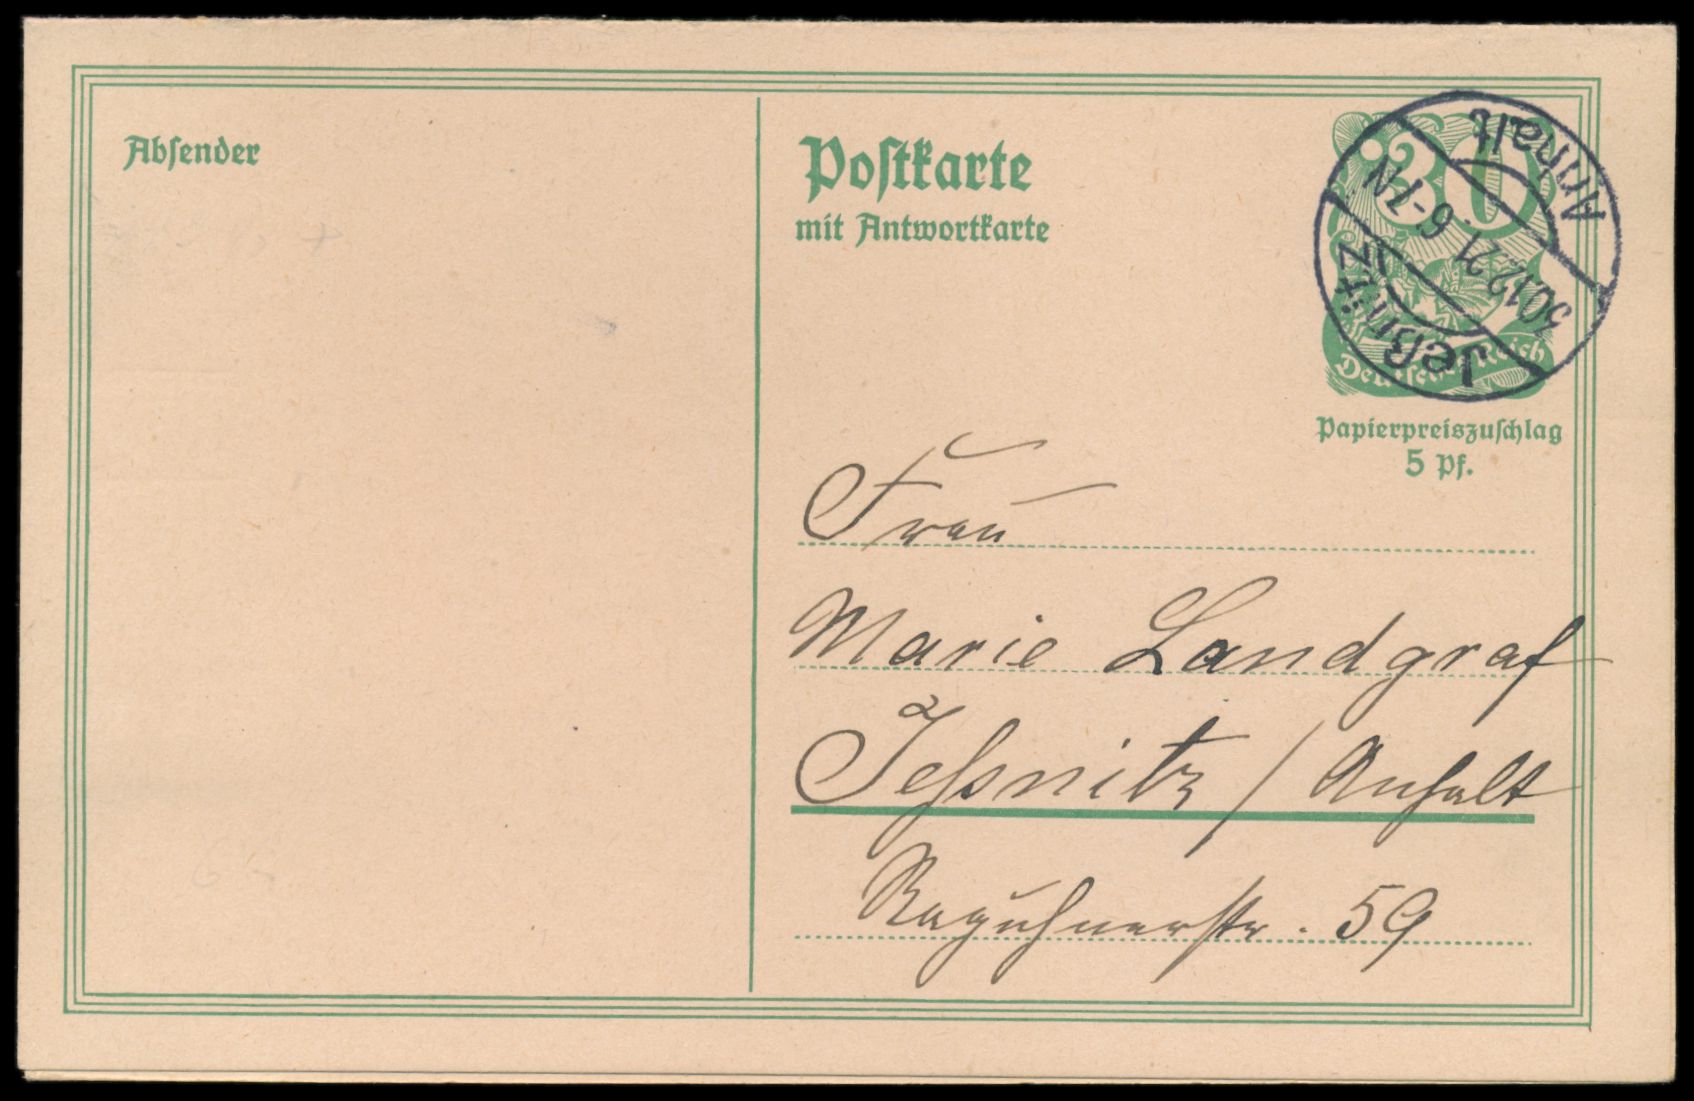 Absender
Postkarte
mit Antwortkarte
30
Deutsches Reich
Jeßnitz
30.12.21. 6-7N
Anhalt
Papierpreiszuschlag
5 Pf.
Frau
Marie Landgraf
Jeßnitz / Anhalt
Raguhnerstr. 59